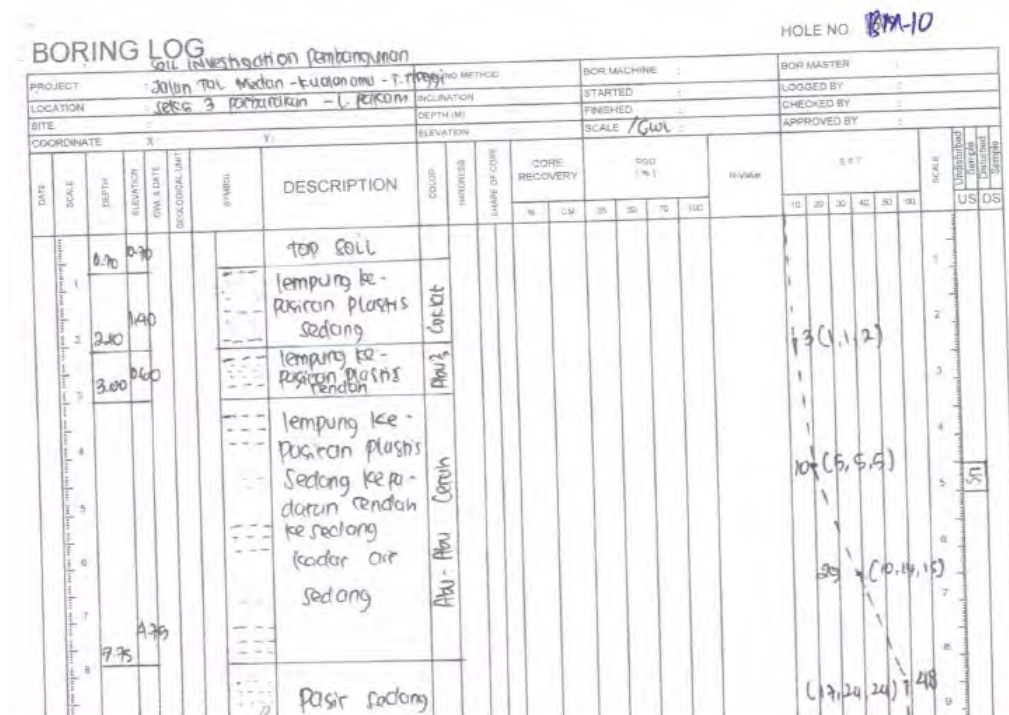 HOLE NO BM-10
BORING LOG
Soil Investigation Pembangunan
PROJECT : Jalan Tol Medan - Kualanamu - T. Tinggi
LOCATION : seksi 3 parbarakan - L. Pakam
SITE :
COORDINATE X: Y:
INCLINATION
DEPTH (M)
ELEVATION
BOR MACHINE :
STARTED :
FINISHED :
SCALE /GWL :
BOR MASTER :
LOGGED BY :
CHECKED BY :
APPROVED BY :
DATE SCALE DEPTH ELEVATION GWL & DATE GEOLOGICAL UNIT SYMBOL DESCRIPTION COLOR HARDNESS SHAPE OF CORE CORE RECOVERY RQD (%) N-Value SPT SCALE Undisturbed Sample Disturbed Sample
% CM 25 50 70 100 10 20 30 40 50 60 US DS
0.70 0.70 TOP SOIL
lempung ke-
pasiran plastis
sedang
Coklat
2.10 1.40
3 (1,1,2)
lempung ke-
pasiran plastis
rendah
Abu2
3.00
lempung ke-
pasiran plastis
sedang kepa-
datan rendah
ke sedang
kadar air
sedang
Abu-Abu Cerah
10 (5,5,5)
29 (10,14,15)
7.75 4.75
pasir sedang
(17,24,24) 48
1
2
3
4
5
6
7
8
1
2
3
4
5
6
7
8
9